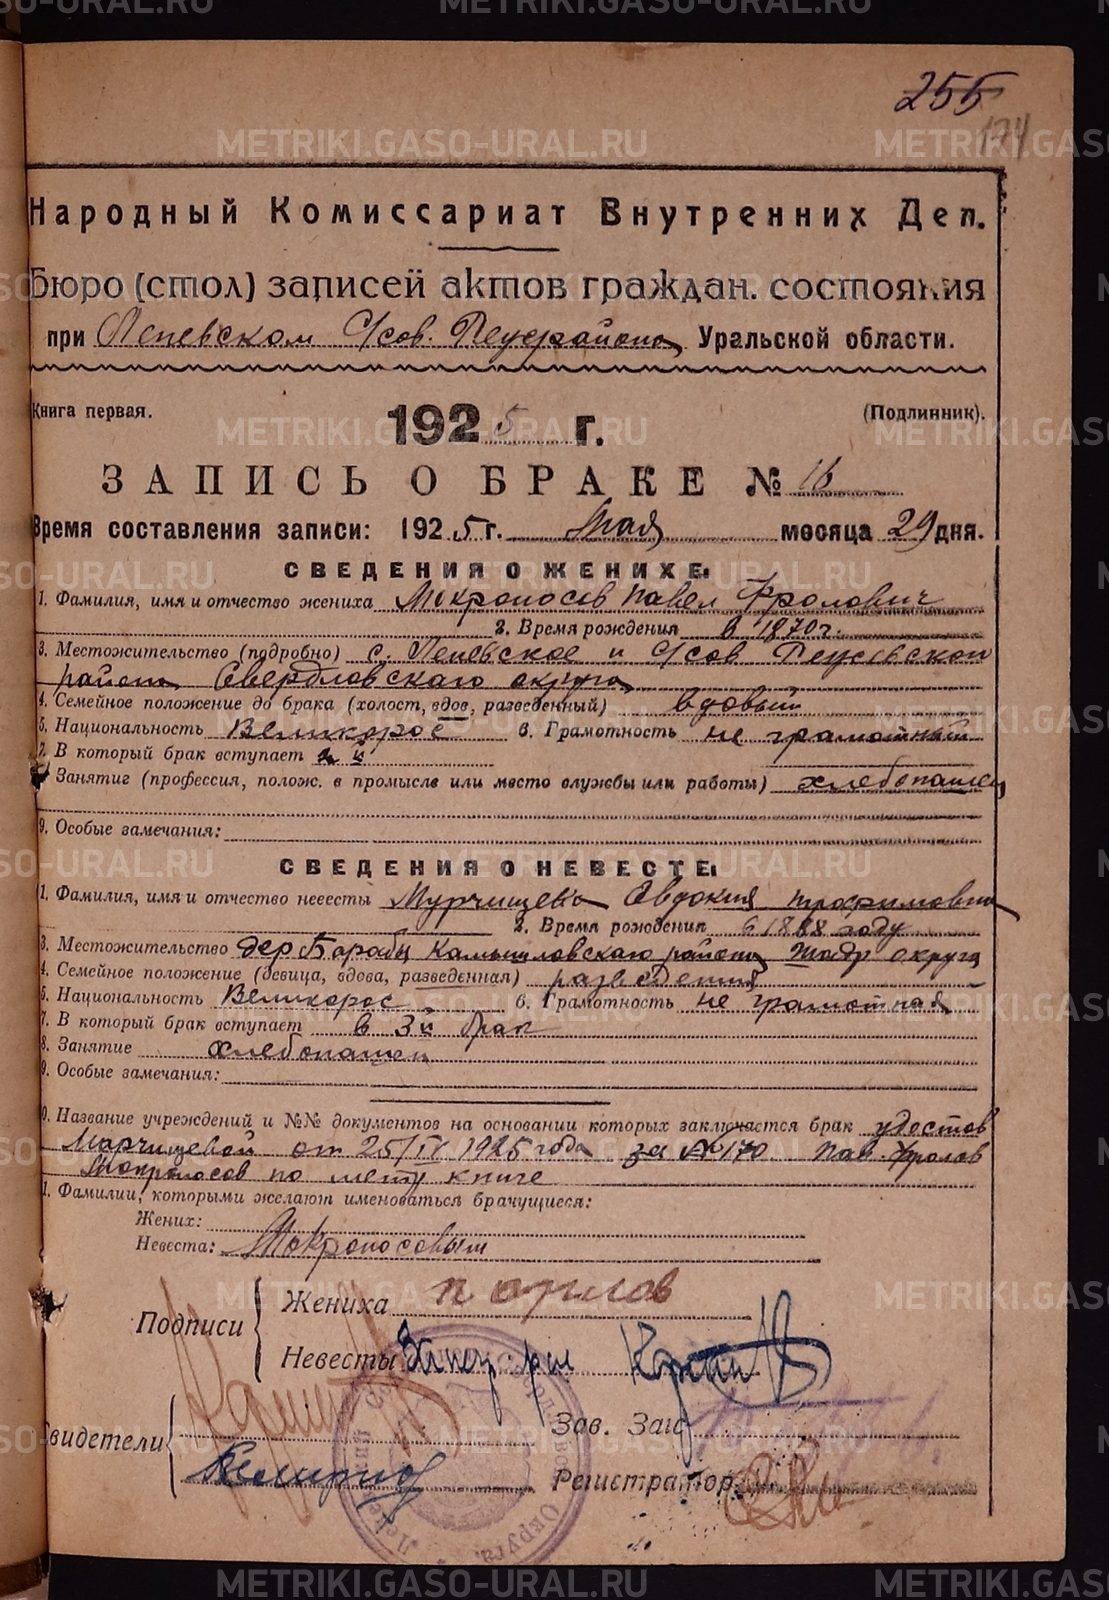 255
174
Народный Комиссариат Внутренних Дел.
Бюро (стол) записей актов граждан. состояния
при Лепевском С/сов. Реуфрайона Уральской области.
Книга первая. (Подлинник).
1925 г.
ЗАПИСЬ О БРАКЕ № 16
Время составления записи: 1925 г. Мая месяца 29 дня.
СВЕДЕНИЯ О ЖЕНИХЕ:
1. Фамилия, имя и отчество жениха Мокроносов Павел Фролович
2. Время рождения в 1870 г.
3. Местожительство (подробно) с. Лепевское и С/сов
района Свердловскаго округа
4. Семейное положение до брака (холост, вдов, разведенный) вдовый
5. Национальность Великорос 6. Грамотность не грамотный
7. В который брак вступает 2й
8. Занятие (профессия, полож. в промысле или место службы или работы) хлебопашец
9. Особые замечания:
СВЕДЕНИЯ О НЕВЕСТЕ:
1. Фамилия, имя и отчество невесты Мурчищева Евдокия Трофимовна
2. Время рождения в году
3. Местожительство дер Барабы Камышловскаго района Шадр округа
4. Семейное положение (девица, вдова, разведенная) разведенная
5. Национальность Великорос 6. Грамотность не грамотная
7. В который брак вступает в 3й брак
8. Занятие хлебопашец
9. Особые замечания:
10. Название учреждений и №№ документов на основании которых заключается брак удостов
Марчищевой от 25/IV 1925 года за № 170. Пав. Фролов
Мокроносов по метр книге
11. Фамилии, которыми желают именоваться брачущиеся:
Жених:
Невеста: Мокроносовым
Подписи
Жениха
Невесты
Свидетели
Зав. Загс
Регистратор
METRIKI.GASO-URAL.RU